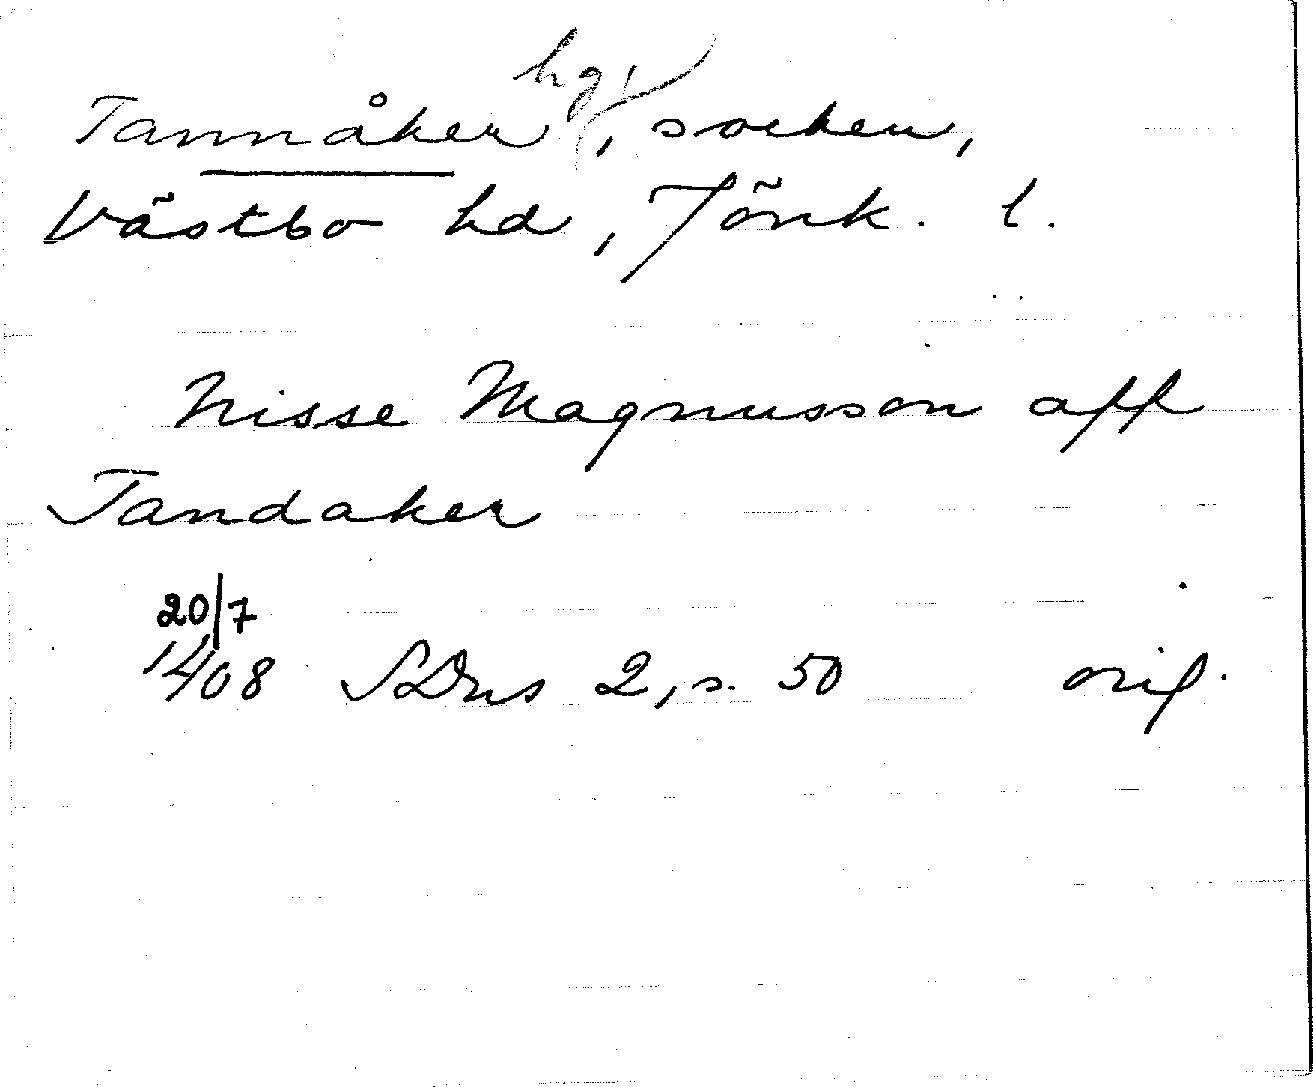 hg,
Tannåker, socken,
Västbo hd, Jönk. l.
Nisse Magnusson aff
Tandaker
20/7
1408 SDns 2, s. 50 orig.